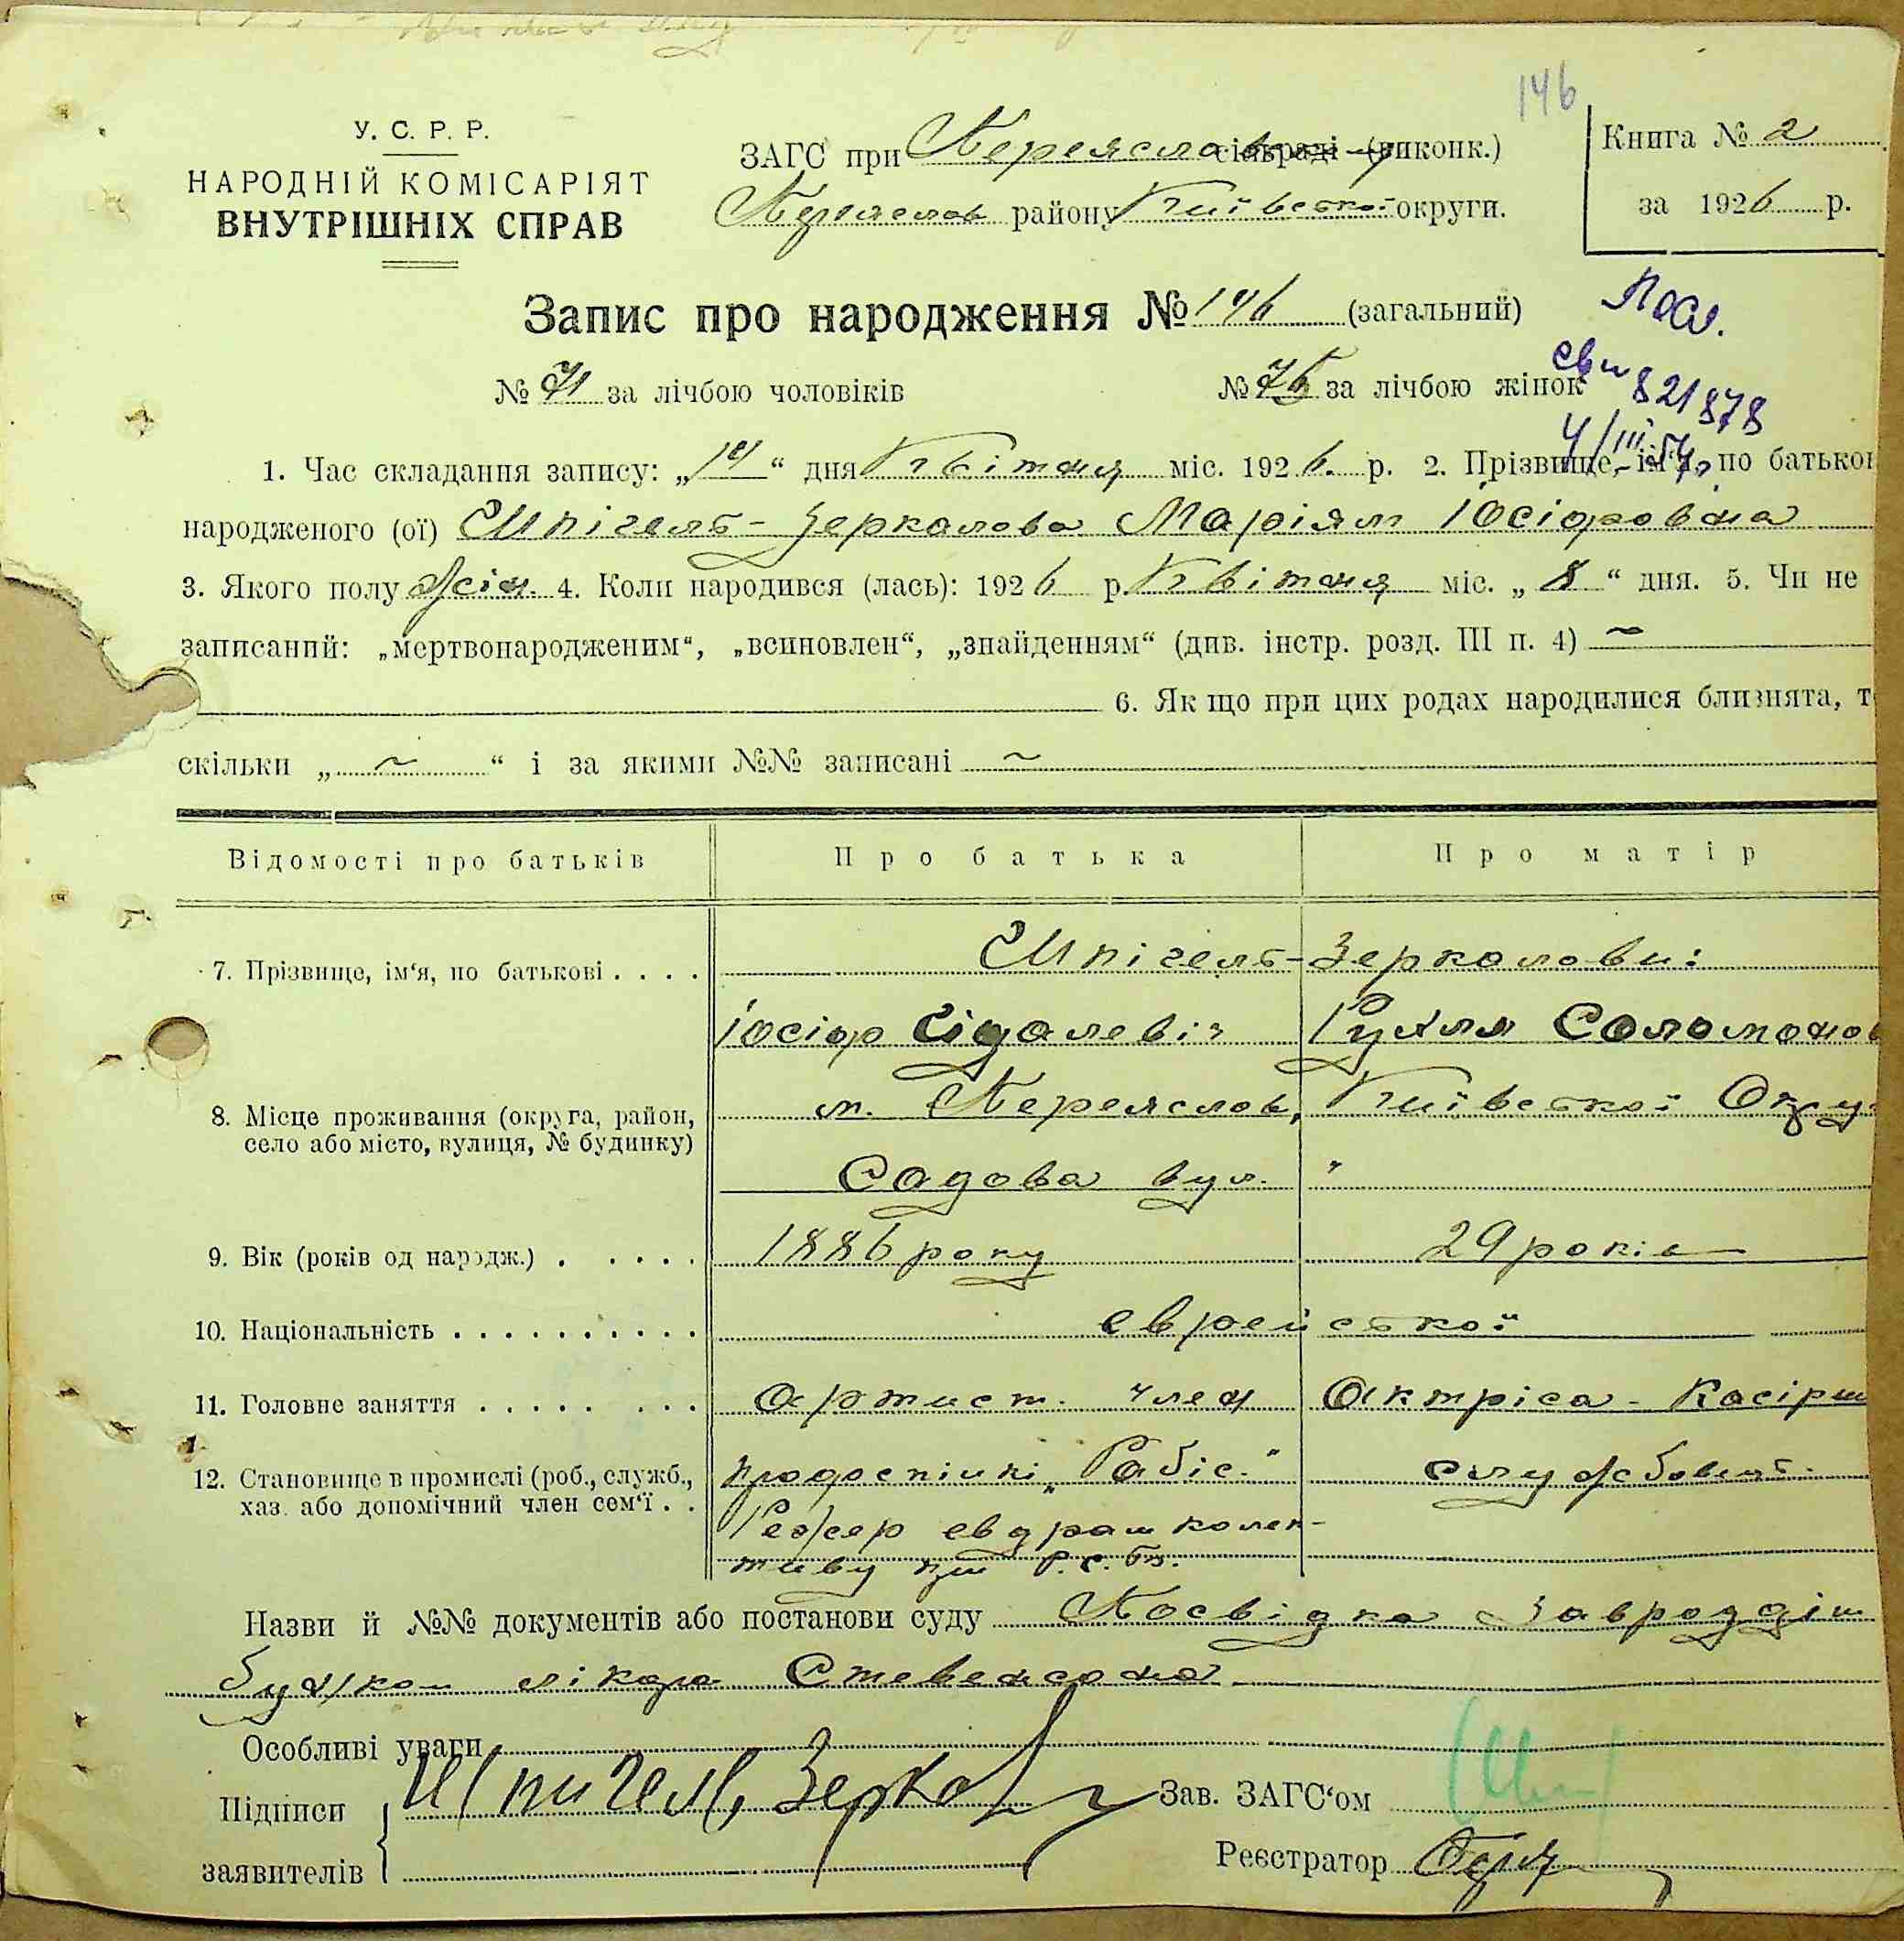 146
У. С. Р. Р.
НАРОДНІЙ КОМІСАРІЯТ
ВНУТРІШНІХ СПРАВ
ЗАГС при Переяслав сільраді (виконк.)
Переяслав району Київської округи.
Книга № 2
за 1926 р.
Запис про народження № 146 (загальний)
№ 71 за лічбою чоловіків № 75 за лічбою жінок
821878
1. Час складання запису: „14“ дня Квітня міс. 1926. р. 2. Прізвище, ім'я, по батькові
народженого (ої) Шпігель-Зеркалова Маріям Іосіфовна
3. Якого полу жін. 4. Коли народився (лась): 1926 р. Квітня міс. „8“ дня. 5. Чи не
записаний: „мертвонародженим“, „всиновлен“, „знайденням“ (див. інстр. розд. III п. 4) ~
6. Як що при цих родах народилися близнята, т
скільки „ ~ “ і за якими №№ записані ~
Відомості про батьків Про батька Про матір
7. Прізвище, ім‘я, по батькові . . . . Шпігель-Зеркалови:
Іосіф Сідалевіч Рухля Соломонов
8. Місце проживання (округа, район, м. Переяслов, Київської Окру
село або місто, вулиця, № будинку)
Садова вул. "
9. Вік (років од народж.) . . . . . 1886 року 29 років
10. Національність . . . . . . . . . . еврейської
11. Головне заняття . . . . . . . . артист. член Актріса - Касірш
12. Становище в промислі (роб., служб., профспілкі „Рабіс.“ службовець.
хаз. або допомічний член сем‘ї . .
Реджер евдрам колек-
тиву при Р.С.Б.
Назви й №№ документів або постанови суду Посвідка Завроддім
будком лікаря Стевенсона
Особливі уваги
Підписи Шпигель, Зеркал Зав. ЗАГС‘ом
заявителів Реєстратор